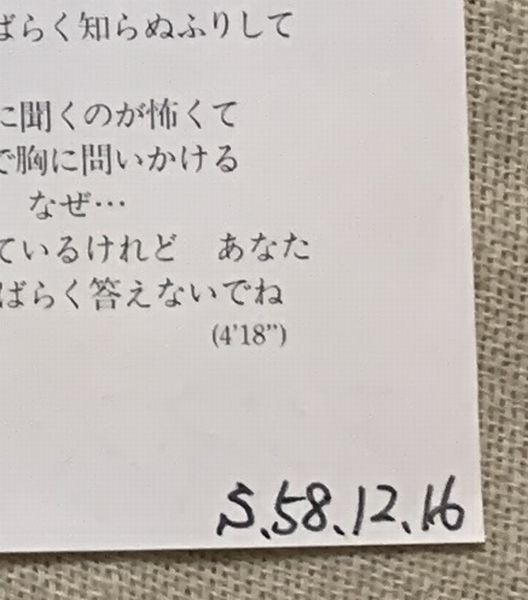 ばらく知らぬふりして
に聞くのが怖くて
で胸に問いかける
なぜ…
ているけれど　あなた
ばらく答えないでね
(4'18”)
S.58.12.16